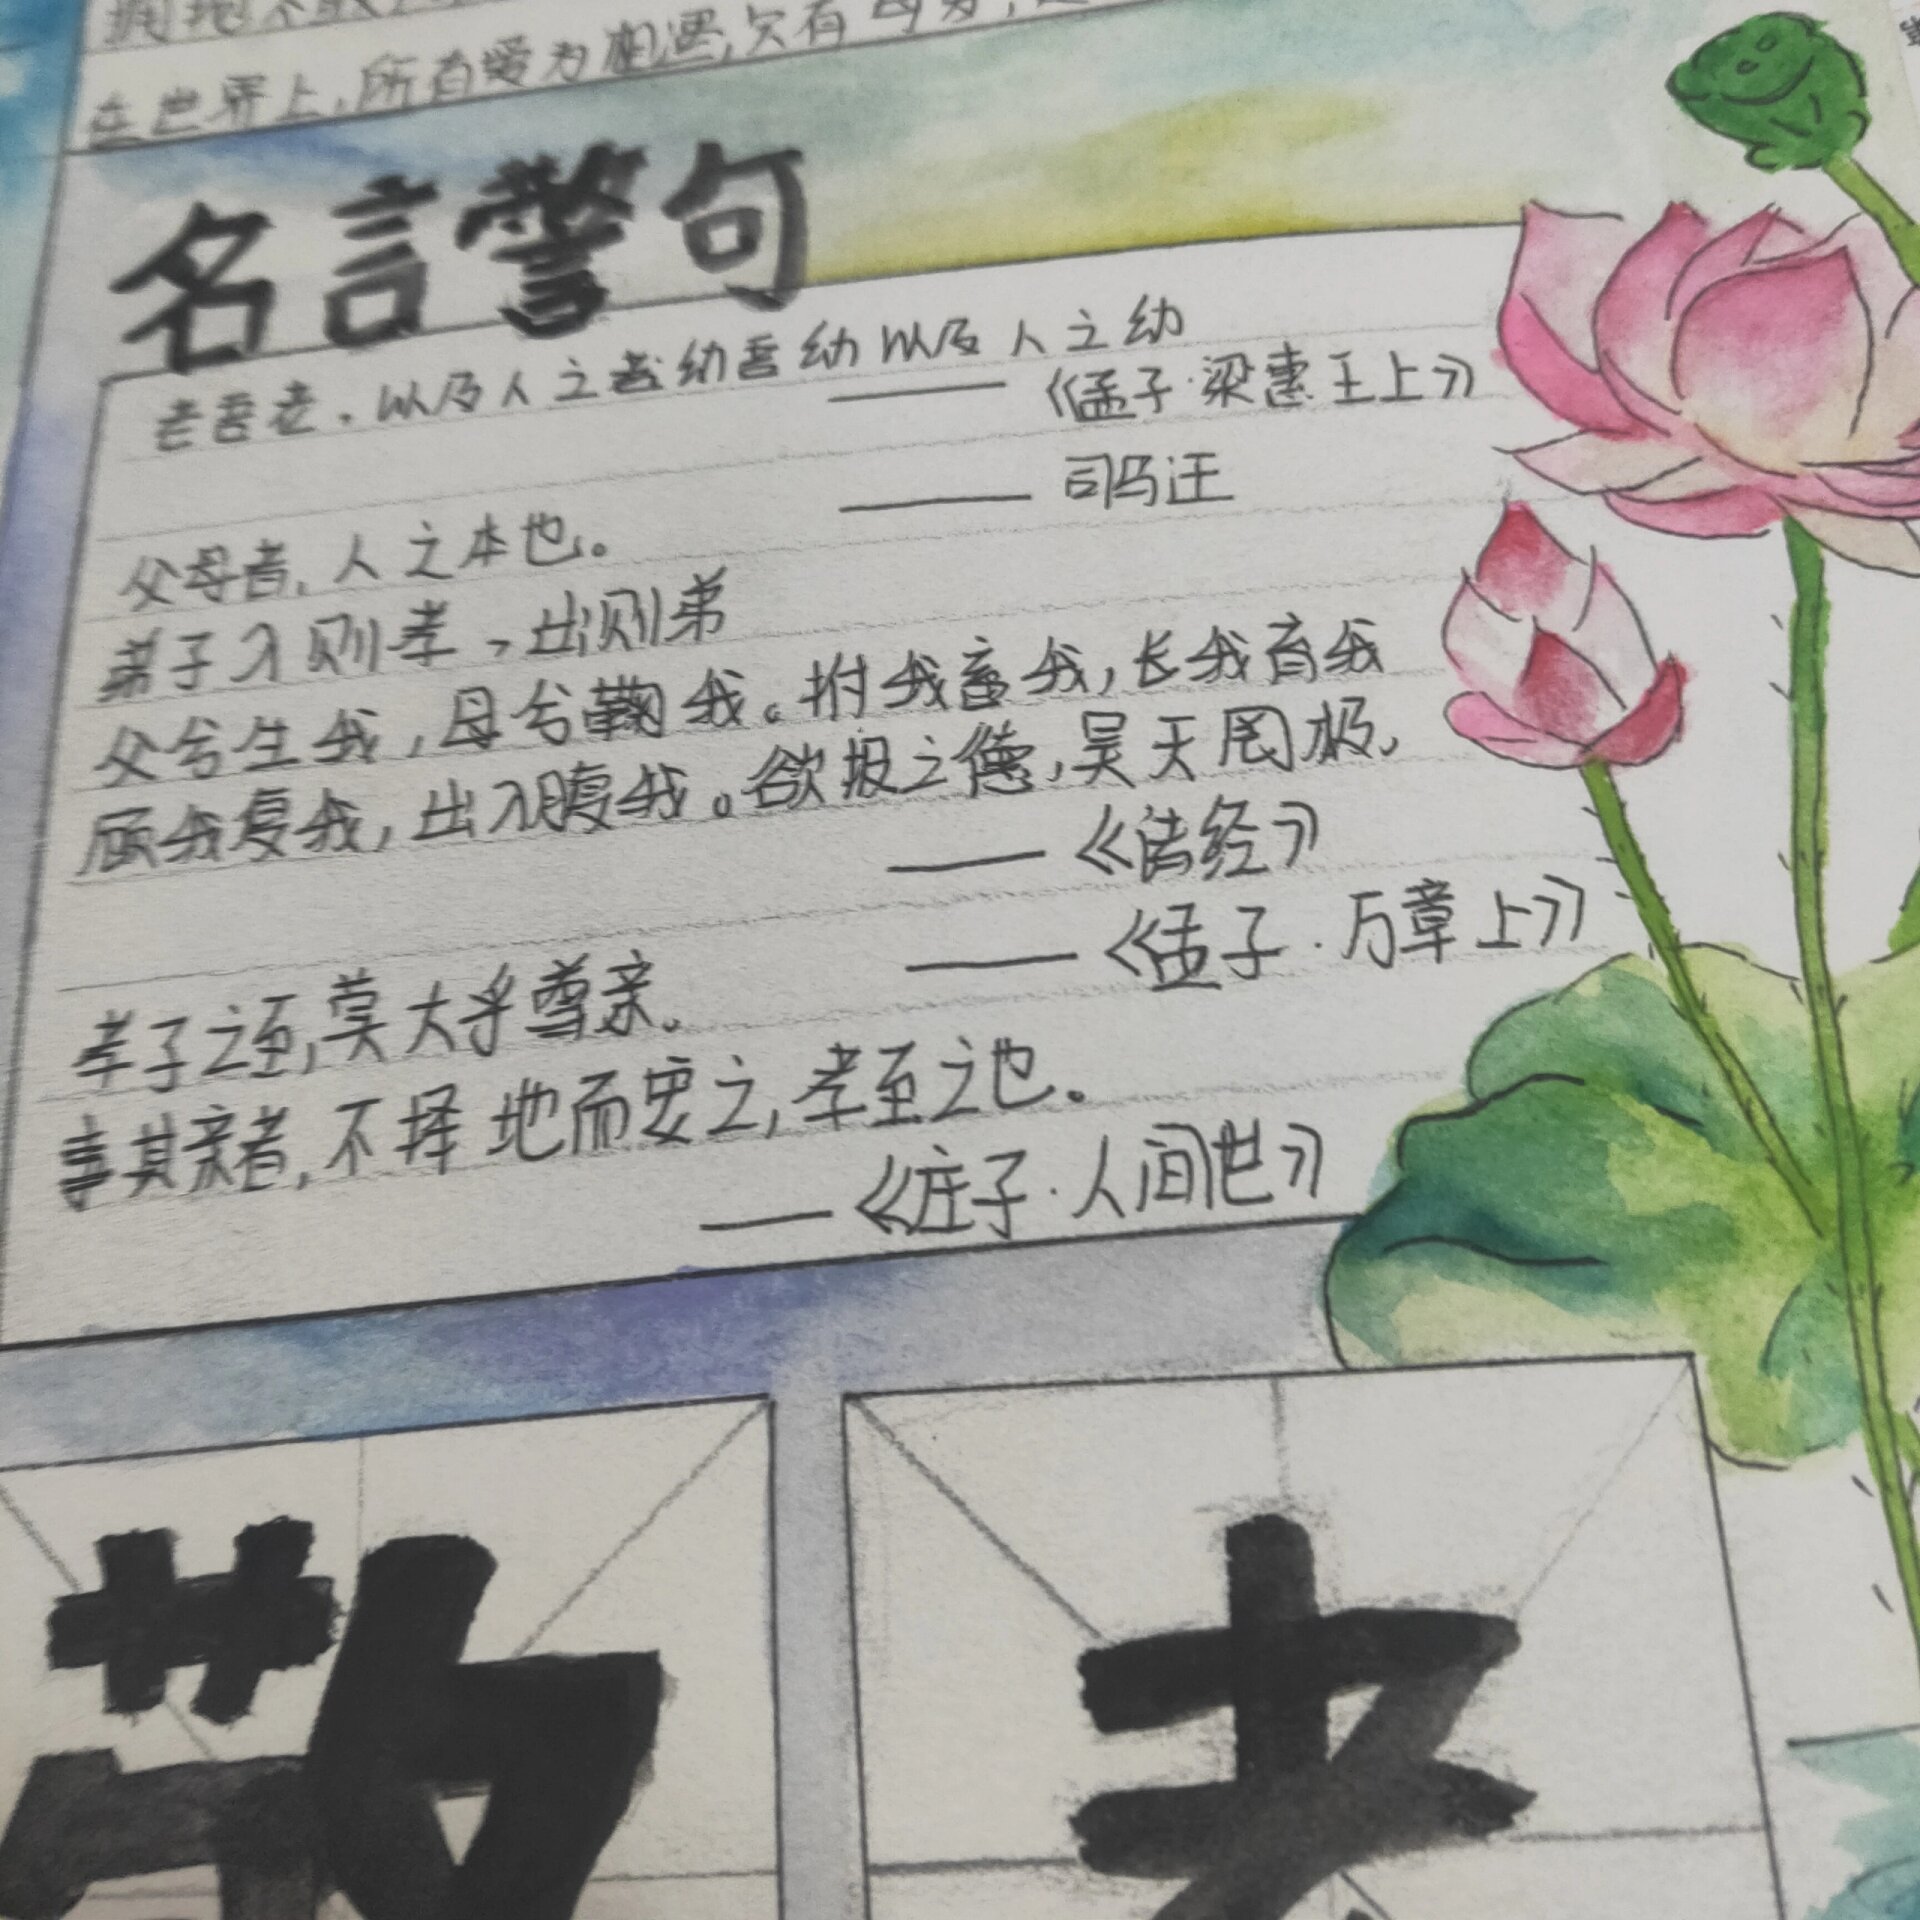 在世界上,所有爱为相遇,欠有母
名言警句
老吾老,以及人之老幼吾幼以及人之幼
——《孟子·梁惠王上》
——司马迁
父母者,人之本也。
弟子入则孝,出则弟
父兮生我,母兮鞠我。拊我畜我,长我育我
顾我复我,出入腹我。欲报之德,昊天罔极,
——《诗经》
——《孟子·万章上》
孝子之至,莫大乎尊亲。
事其亲者,不择地而安之,孝至之也。
—《庄子·人间世》
敬老